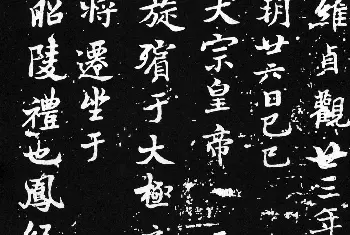 維貞觀廿三年
朔廿六日己巳
大宗皇帝
旋殯于大極
將遷坐于
昭陵禮也鳳